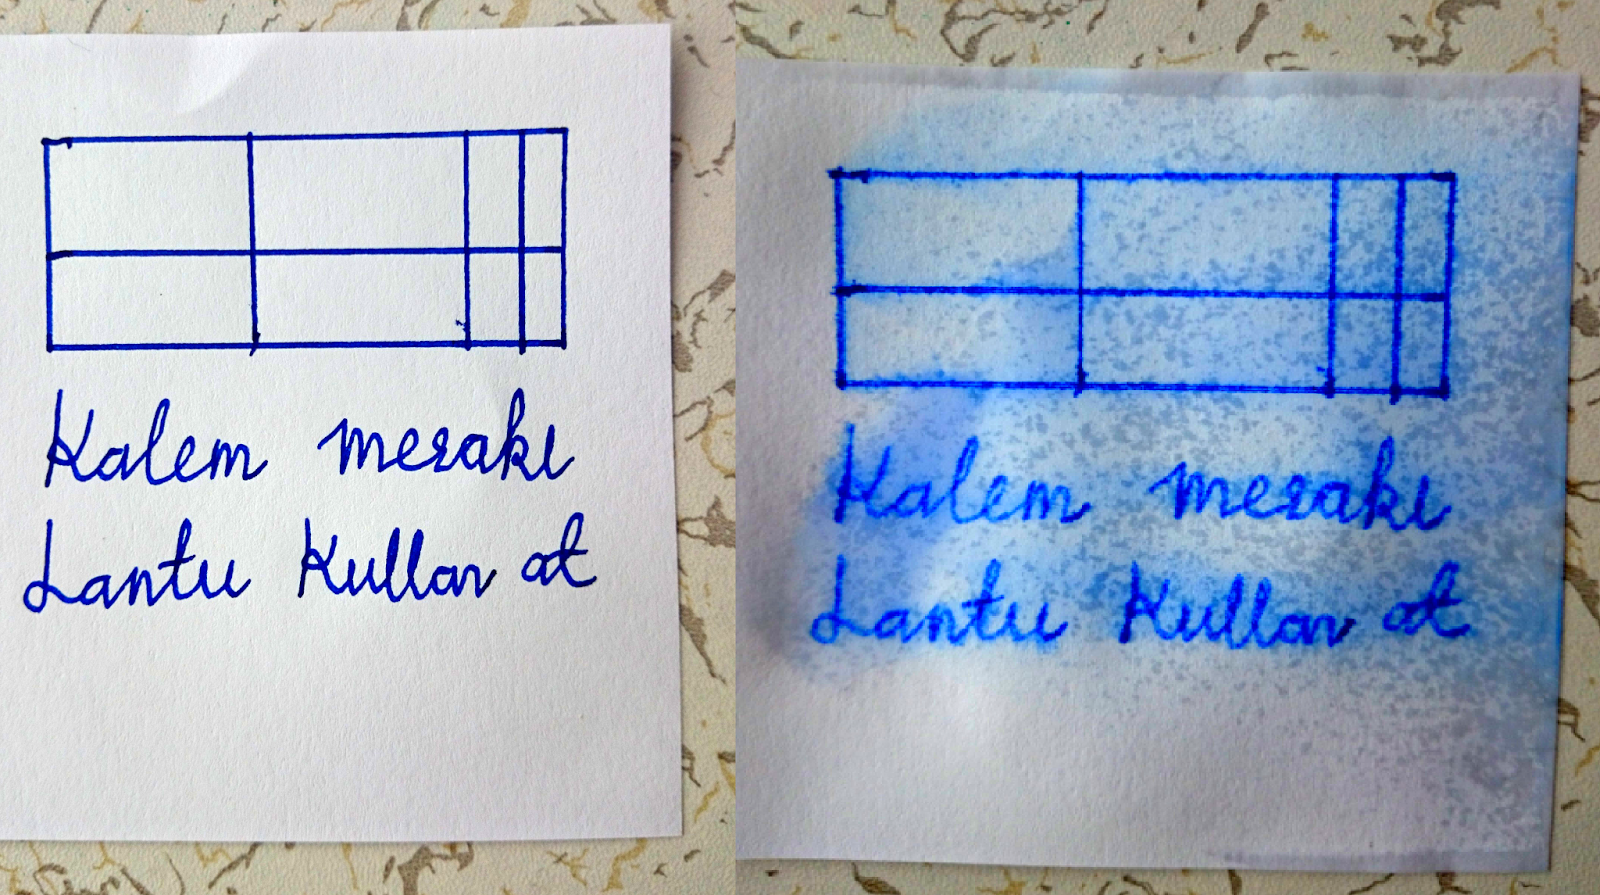 Kalem merakı
Lantu Kullan at
Kalem merakı
Lantu Kullan at